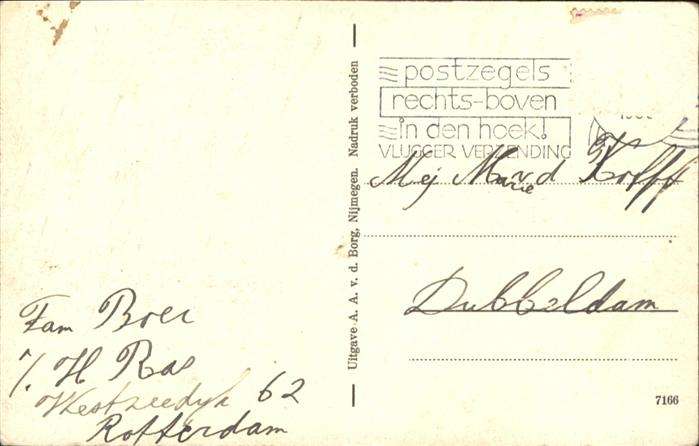 Uitgave A. A. v. d. Borg, Nijmegen. Nadruk verboden
postzegels
rechts-boven
in den hoek!
VLUGGER VERZENDING
Mej Marie v d Kolff
Dubbeldam
Fam Boer
%. H Ras
Westzeedyk 62
Rotterdam
7166